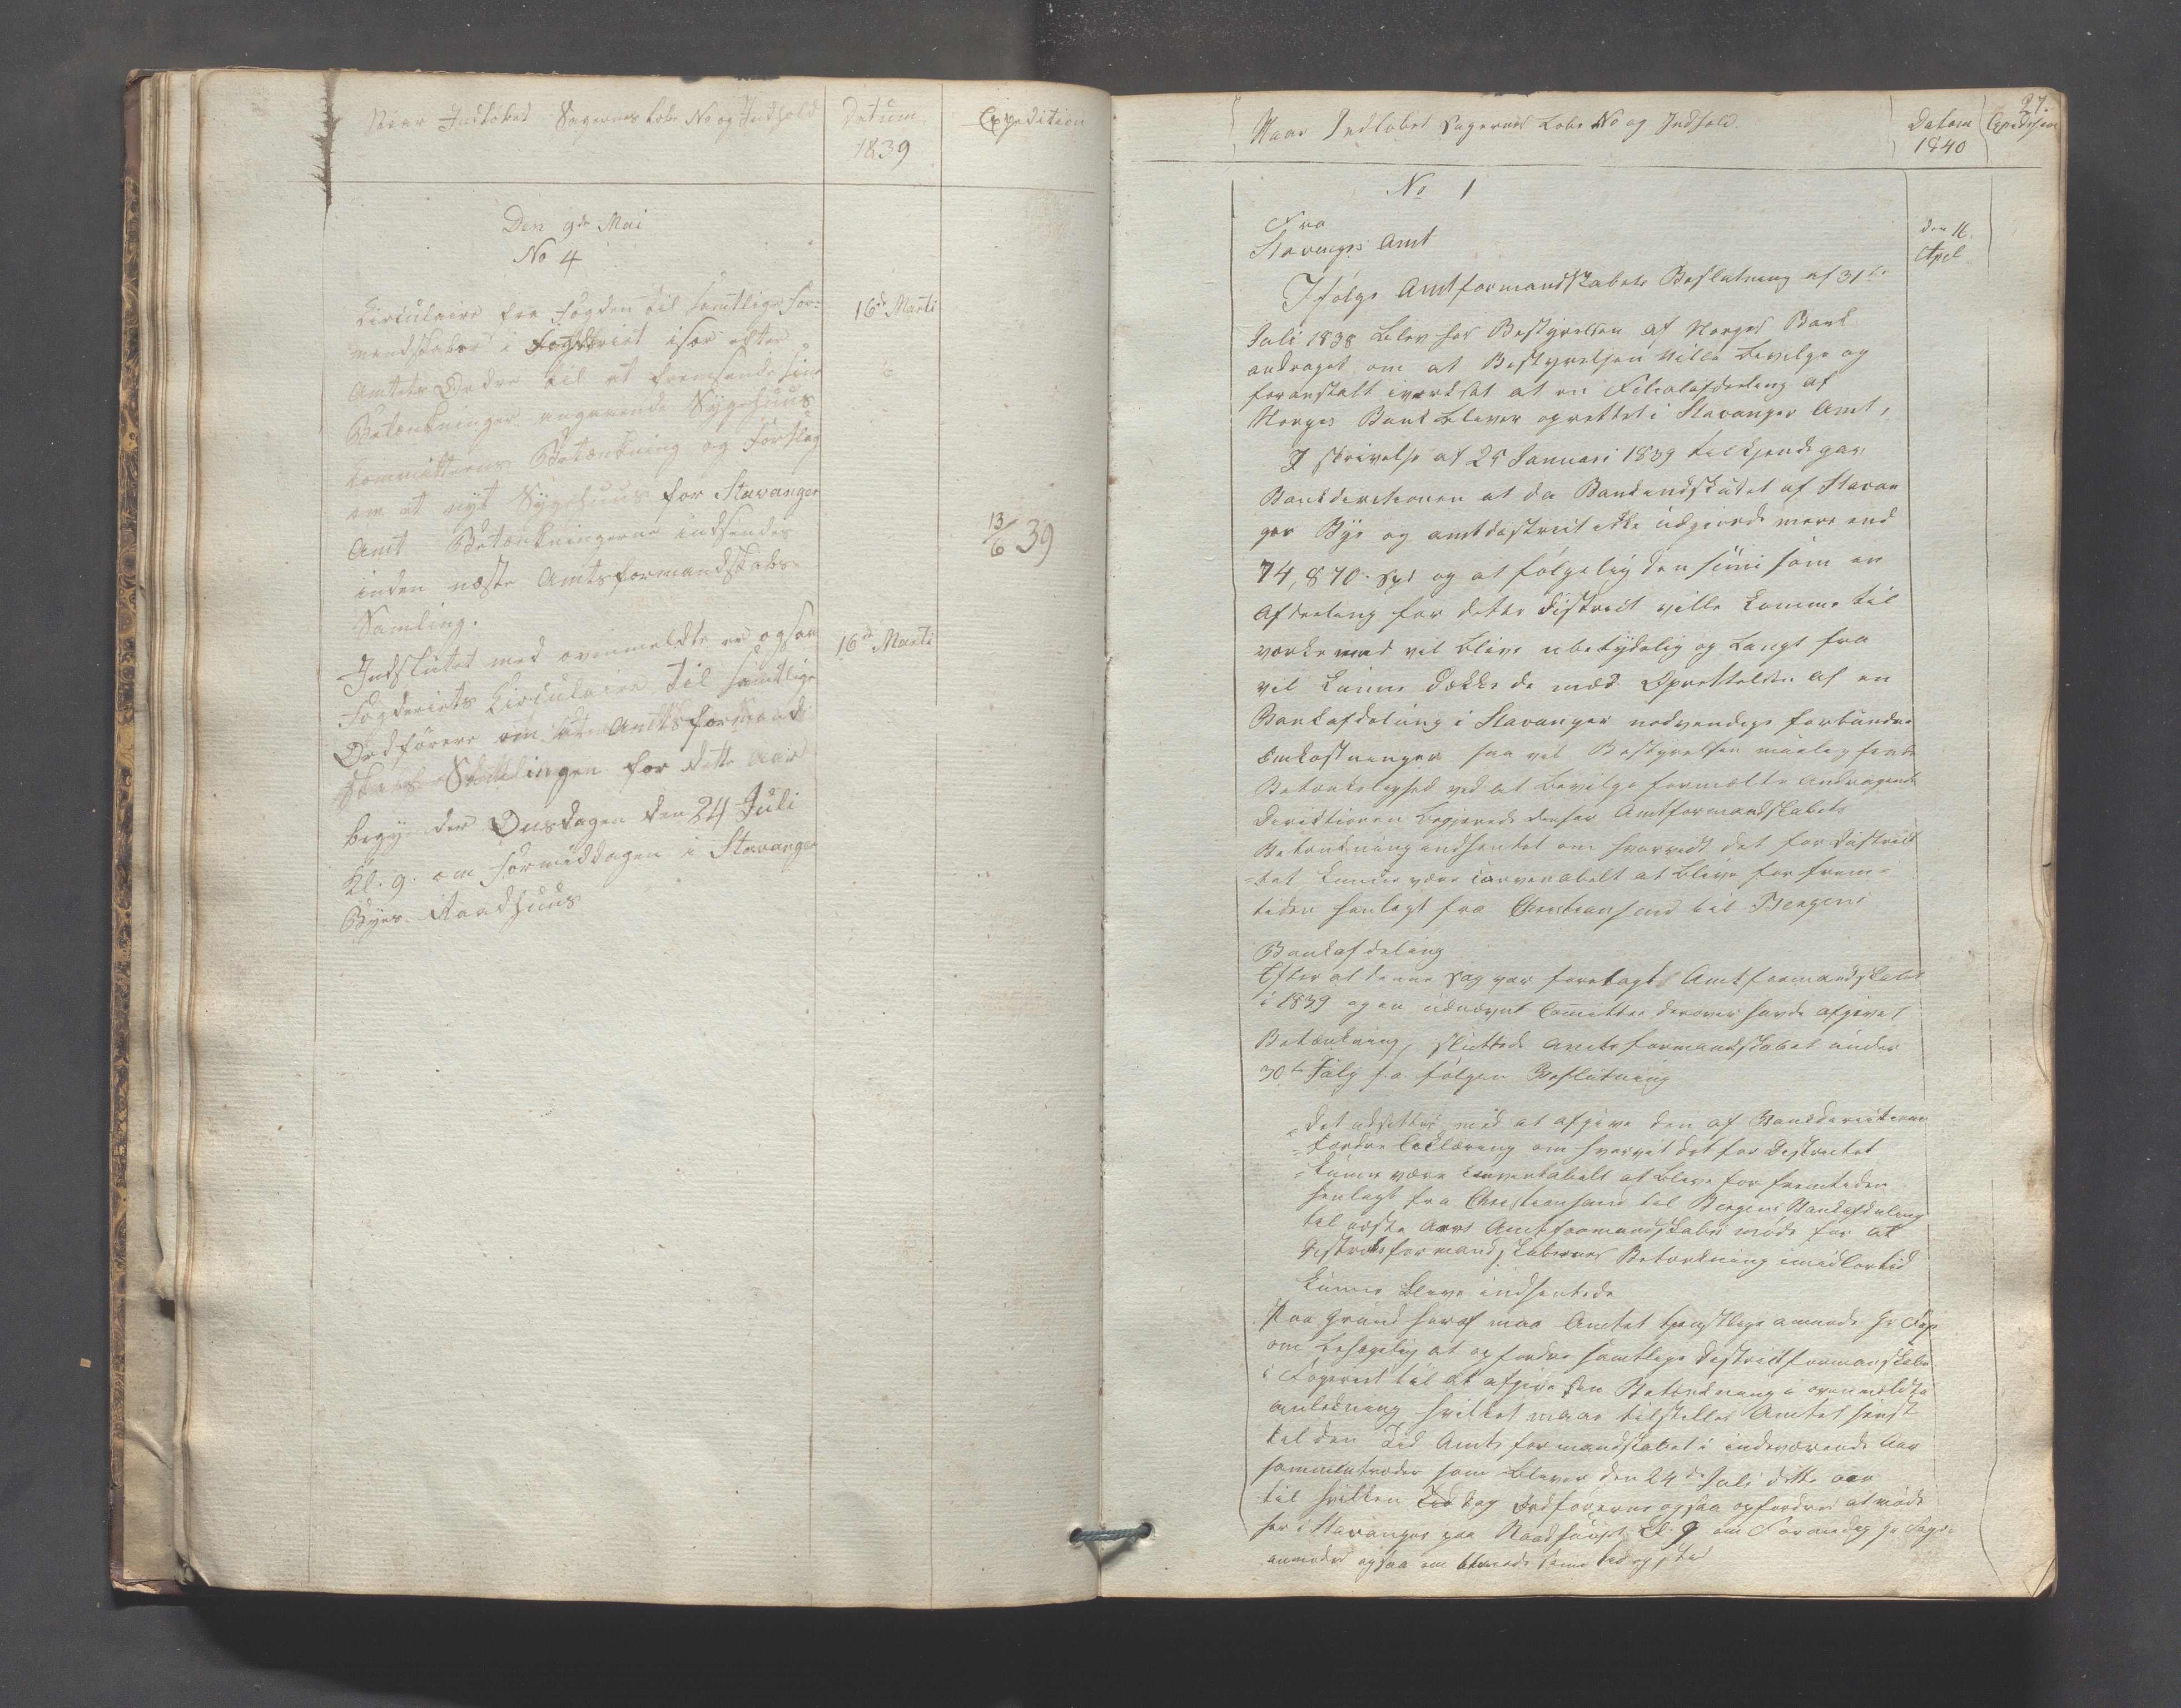 Naar Indløbet Sagernes Løbe No og Indhold
Datum
1839
Expedition
Den 9de Mai
No 4
Circulaire fra Fogden til samtlige For-
mendskaber i Fogderiet især efter
Amtets Ordre til at fremsende sine
Betænkninger angaaende Sygehuus
Committeens Betænkning og Forslag
om et nyt Sygehuus for Stavanger
Amt Betænkningerne indsendes
inden næste Amtsformandskabs
Samling.
16de Marti
13/6 39
Indsluttet med ovenmeldte er ogsaa
Fogderiets Circulaire til samtlige
Ordførere om at Amtsformand
skabs Samlingen for dette Aar
begynder Onsdagen den 24 Juli
Kl. 9. om Formiddagen i Stavanger
Byes Raadhuus
16de Marti
27.
Naar Indløbet Sagernes Løbe No og Indhold.
Datum
1840
Expedition
No 1
Fra
Stavanger Amt
den 11.
April
Ifølge Amtformandskabets Beslutning af 31te
Juli 1838 blev hos Bestyrelsen af Norges Bank
andraget om at Bestyrelsen ville bevilge og
foranstalt iverksat at en Filialafdeeling af
Norges Bank bliver oprettet i Stavanger Amt,
I skrivelse af 25 Januari 1839 tilkjendegav
Bankdirectionen at da Bankindskudet af Stavan
ger Bye og amtdistrict ikke udgiorde mere end
74,870 Spd og at følgelig den sum som en
Afdeeling for dette District ville komme til
virke med vil blive ubetydelig og langt fra
vil kunne dække de med Oprettelsen af en
Bankafdeling i Stavanger nødvendige forbundne
Omkostninger saa vil Bestyrelsen muelig finde
Betænkelighed ved at bevilge formældte Andragende
Directionen begjerede derfor Amtformandskabets
Betænkning indhentet om hvorvidt det for District
tet kunne være convenabelt at blive for frem-
tiden henlagt fra Christiansand til Bergens
Bankafdeling
Efter at denne Sag var foretaget Amtformandskabet
i 1839 og en udnævnt Committee derover havde afgivet
Betænkning, sluttede Amtsformandskabet under
30te July s.a. følgen Beslutning
"Det udsettes med at afgive den af Bankdirectionen
fordrede Erklæring om hvorvidt det for Districtet
kunne være convenabelt at blive for fremtiden
henlagt fra Christiansand til Bergens Bankafdeling
til næste Aars Amtsformandskabs møde for at
Districtsformandskabernes Betænkning imidlertid
kunne blive indhentede
Paa Grund heraf maa Amtet tjenstlige anmode Hr
om behagelig at opfordre samtlige Districtformandskaber
i Fogeriet til at afgive sin Betænkning i ovenmeldte
anledning hvilket maae tilstilles Amtet senest
til den Tid Amtsformandskabet i indeværende Aar
sammentræder som bliver den 24de Juli dette aar
til hvilken Tid Dag Ordførerne ogsaa opfordres at møde
her i Stavanger paa Raadhuuset Kl. 9 om Formidag Hr Foged
anmodes ogsaa om at møde samme Tid og Sted